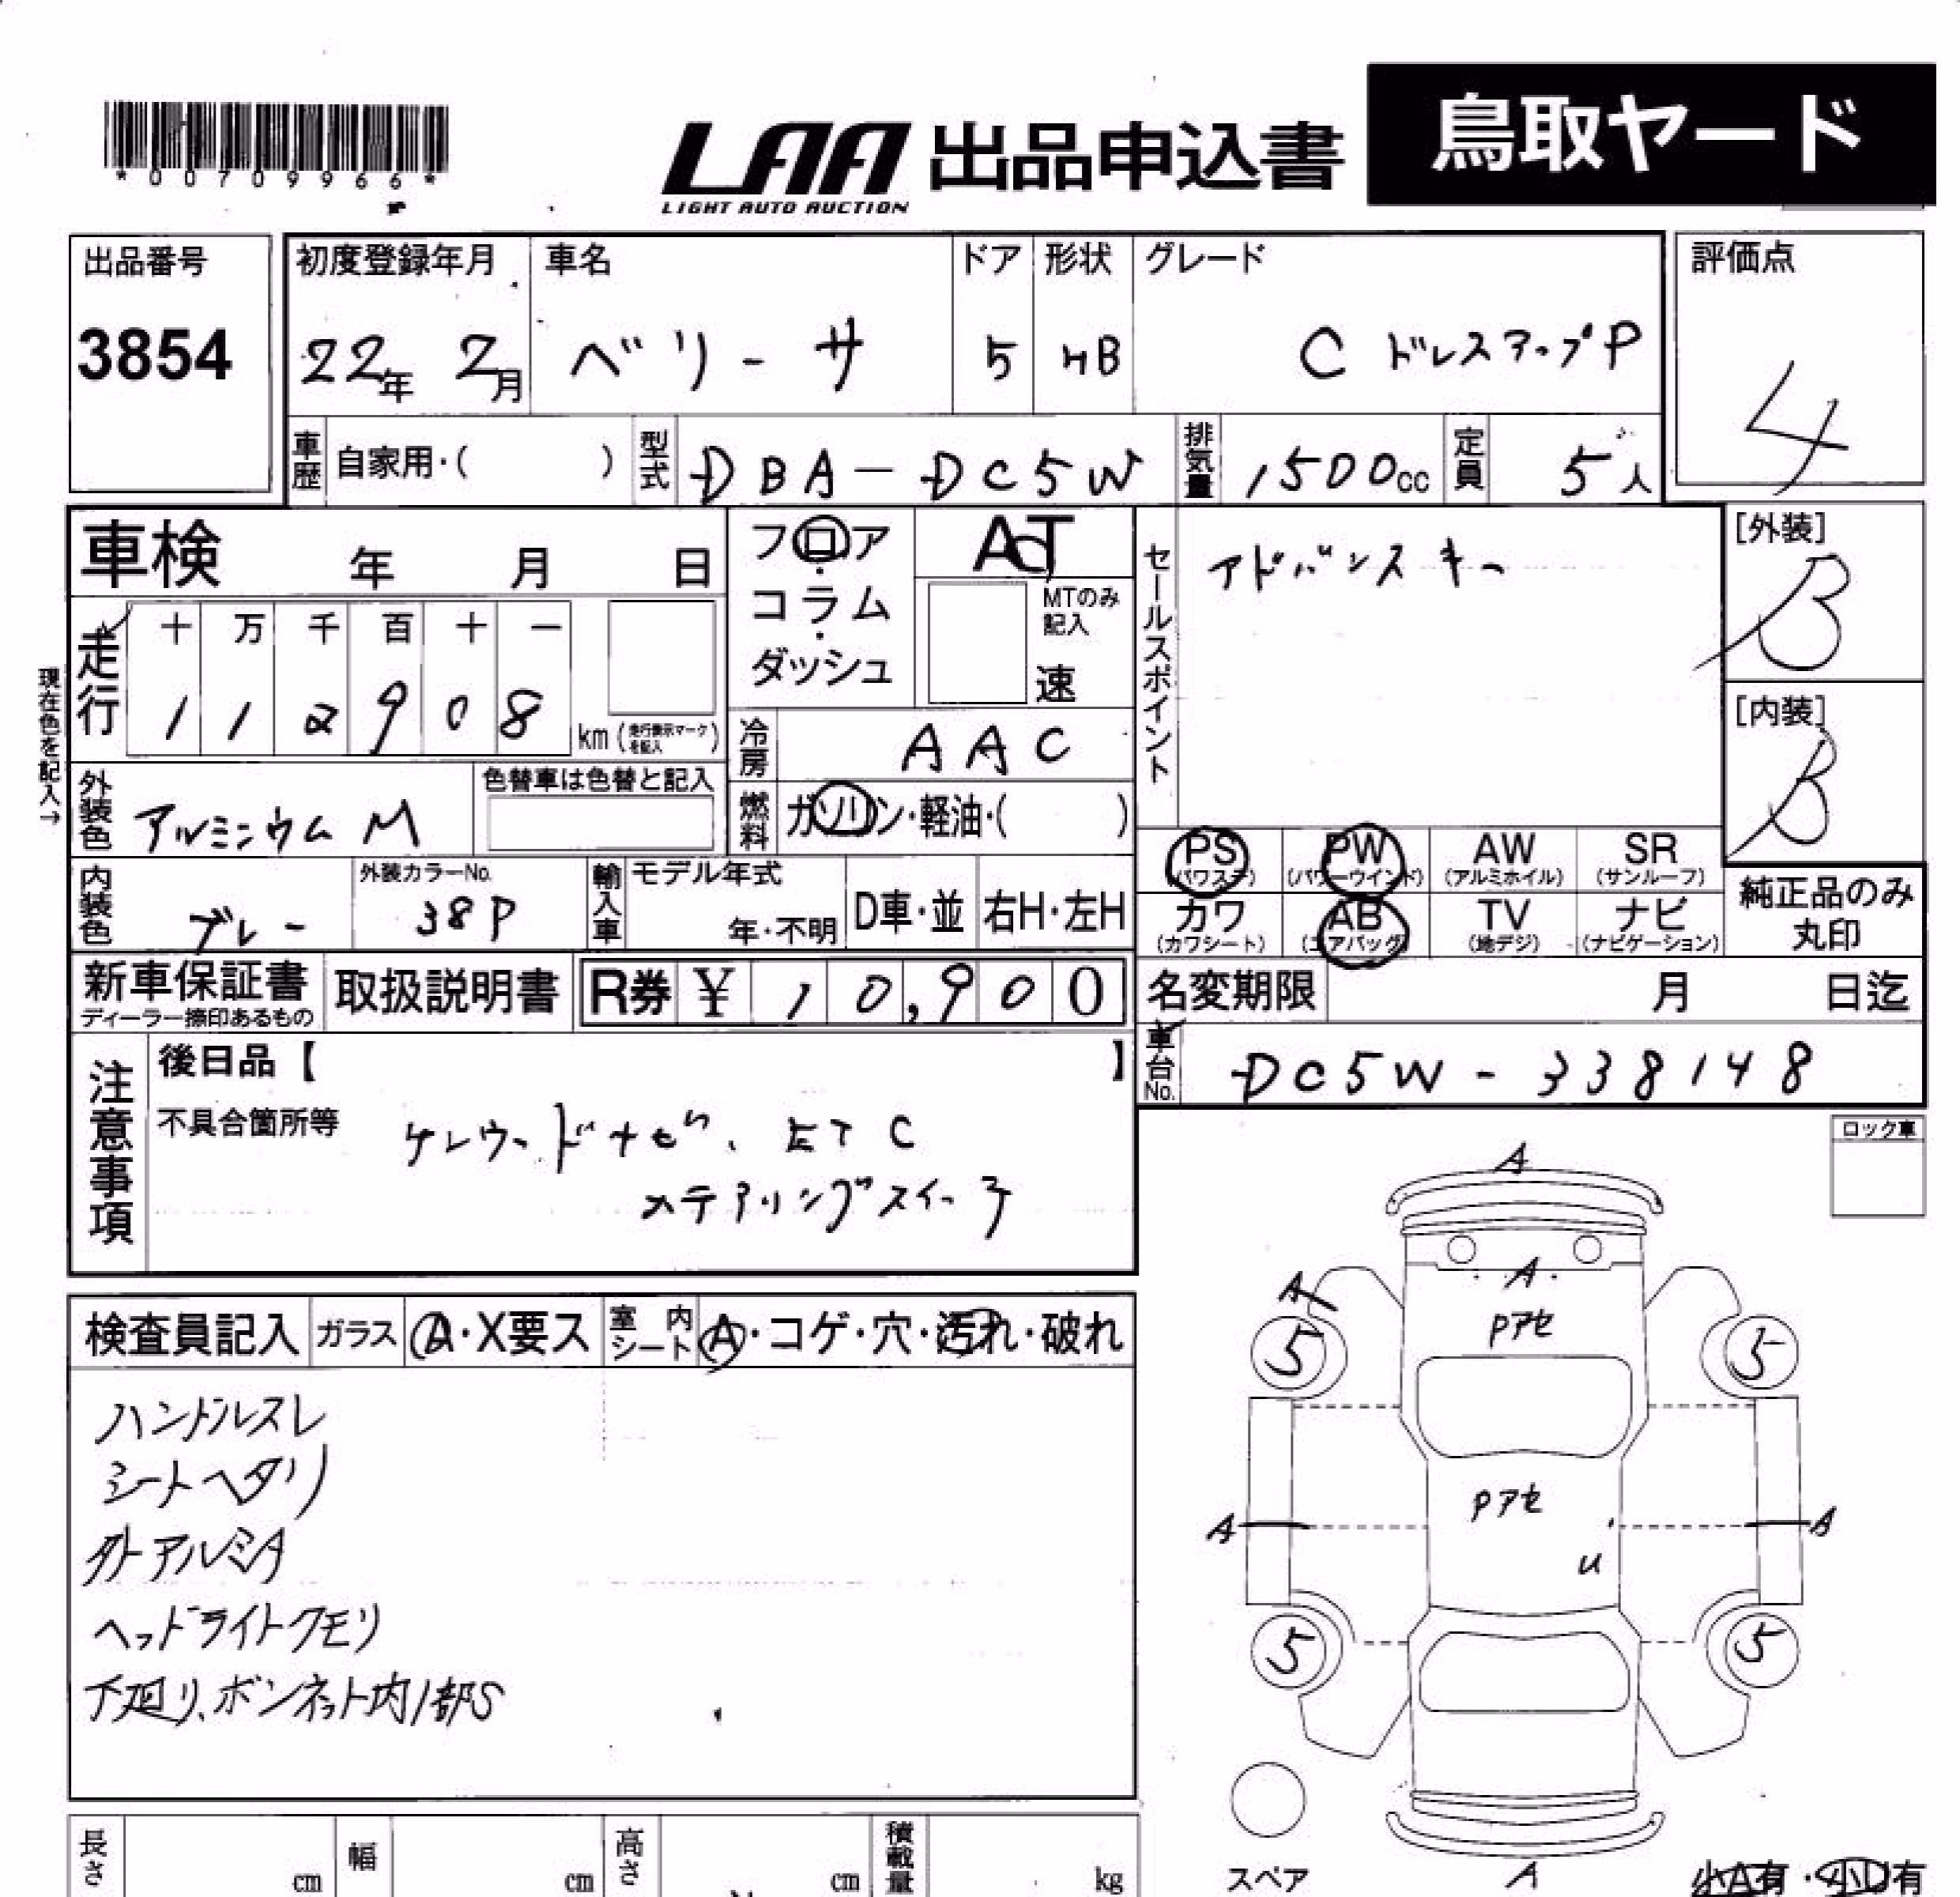 *00709966*
LAA 出品申込書 鳥取ヤード
LIGHT AUTO AUCTION
出品番号 初度登録年月 車名 ドア 形状 グレード 評価点
3854 22年 2月 ベリーサ 5 HB C ドレスアップP 4
車歴 自家用・( ) 型式 DBA-DC5W 排気量 1500cc 定員 5人
車検 年 月 日 フロア・コラム・ダッシュ AT セールスポイント アドバンスキー [外装] B
MTのみ記入 速
走行 十 万 千 百 十 一
1 1 2 9 0 8 km (走行表示マークを記入)
現在色を記入→
冷房 AAC [内装] B
外装色 アルミニウムM 色替車は色替と記入 燃料 ガソリン・軽油・( )
PS (パワステ) PW (パワーウインド) AW (アルミホイル) SR (サンルーフ)
内装色 グレー 外装カラーNo. 38P 輸入車 モデル年式 年・不明 D車・並 右H・左H
カワ (カワシート) AB (エアバッグ) TV (地デジ) ナビ (ナビゲーション) 純正品のみ丸印
新車保証書 ディーラー捺印あるもの 取扱説明書 R券 ¥ 10,900 名変期限 月 日迄
車台No. DC5W-338148
注意事項 後日品【 】
不具合箇所等 ケンウードナビ、ETC
ステアリングスイッチ
ロック車
検査員記入 ガラス A・X要ス 室内シート A・コゲ・穴・汚れ・破れ
ハンドルスレ
シートヘタリ
外アルミタ
ヘッドライトクモリ
下廻り、ボンネット内1部S
A
A A
Pアセ
5 5
Pアセ
A A
U
5 5
スペア A 小A有・小U有
長さ cm 幅 cm 高さ cm 積載量 kg